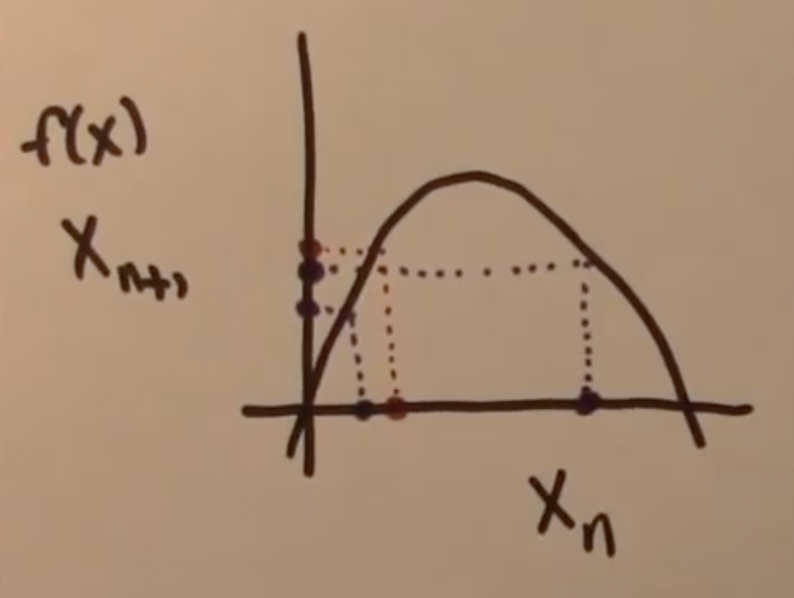 f(x)
X_{n+1}
X_n